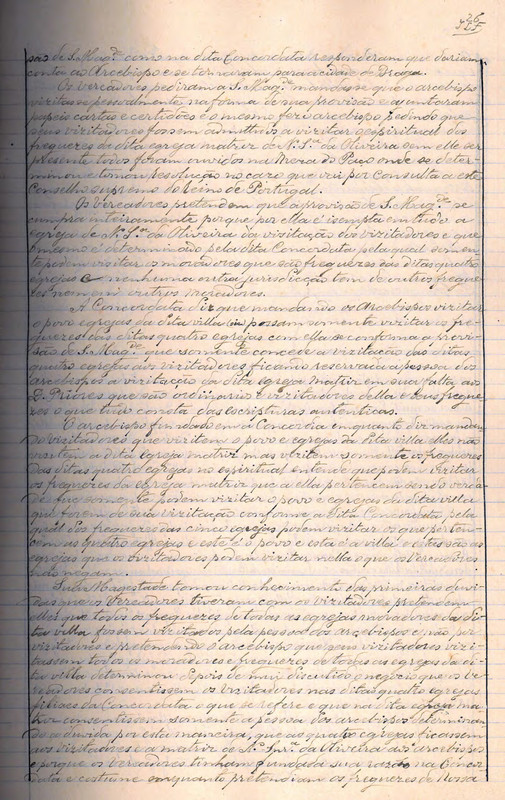 são de S. Mag.de como na dita Concordata responderam que dariam
conta ao Arcebispo e se tornaram para a cidade de Braga.
Os Vereadores pediram a S. Mag.de mandasse que o arcebispo
vizitasse pessoalmente, na forma de sua provisão e ajuntaram
papeis cartas e certidões e o mesmo fez o arcebispo pedindo que
seus vizitadores fossem admittidos a vizitar o espiritual dos
freguezes da dita egreja matriz de N. Sr.a da Oliveira sem elle ser
presente todos foram ouvidos na Meza do Paço onde se deter-
minou e tomou resolução no cazo que veiu por Consulta a este
Conselho supremo do Reino de Portugal.
Os Vereadores pretendem que a provisão de S. Mag.de se
cumpra inteiramente porque por ella é isempta em tudo a
egreja de N. Sr.a da Oliveira da visitação dos vizitadores e que o
mesmo é determinado pela dita Concordata pela qual somen-
te podem visitar os moradores que são freguezes das ditas quatro
egrejas e nenhuma outra jurisdicção tem de outros fregue-
zes nem em outros moradores.
A Concordata diz que mandando os Arcebispos vizitar
o povo e egrejas da dita villa (in) possam somente vizitar os fre-
guezes das ditas quatro egrejas com ella se conforma a Provi-
são de S. Mag.de que somente concede a vizitação das ditas
quatro egrejas aos vizitadores ficando reservada a pessoa dos
arcebispos a vizitação da dita egreja matriz em sua falta aos
D. Priores que são ordinarios e vizitadores della e seus fregue-
zes o que tudo consta das escripturas autenticas.
O arcebispo fundado em a Concordia emquanto diz mandan-
do vizitadores que vizitem o povo e egrejas da dita villa elles não
vizitem a dita egreja matriz mas vizitem somente os freguezes
das ditas quatro egrejas no espiritual entende que podem vizitar
os freguezes da egreja matriz que a ella pertencem sendo verda-
de que somente podem vizitar o povo e egrejas da dita villa
que forem de sua vizitação conforme a dita Concordata, pela
qual dos freguezes das cinco egrejas podem vizitar os que perten-
cem as quatro egrejas e este é o povo e esta é a villa e estas são as
egrejas que os vizitadores podem vizitar nella o que os Vereadores
não negam.
Sua Magestade tomou conhecimento das primeiras duvi-
das que os Vereadores tiveram com os vizitadores pretendem
elles que todos os freguezes de todas as egrejas moradores da di-
ta villa fossem vizitados pela pessoa dos arcebispos e não por
vizitadores e pretendendo o arcebispo que seus vizitadores vizi-
tassem todos os moradores e freguezes de todas as egrejas da di-
ta villa determinou depois de mui discutido o negocio que os ve-
readores consentissem os vizitadores nas ditas quatro egrejas
filiaes da Concordata o que se refere e que na dita egreja ma-
triz consentissem somente a pessoa dos arcebispos determinan-
do a duvida por esta maneira, que as quatro egrejas ficassem
aos vizitadores e a matriz de N.a Snr.a da Oliveira aos arcebispos
e porque os Vereadores tinham fundada sua razão na Concor-
data e costume emquanto pretendiam os freguezes de Nossa